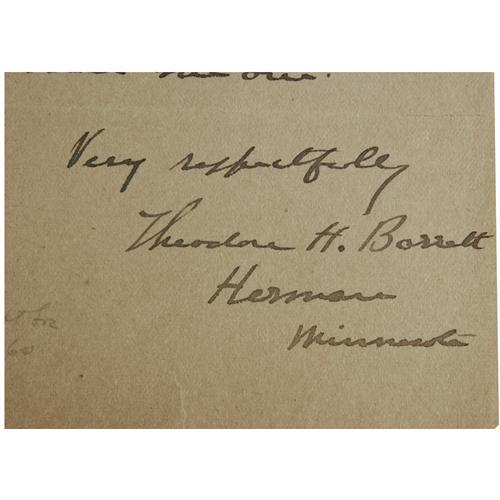 the one.
Very respectfully
Theodore H. Barrett
Herman
Minnesota
60